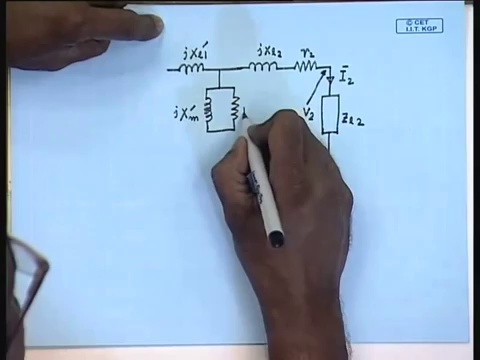 © CET
I.I.T. KGP
jxℓ1′ jxℓ2 r2
I̅2
jx′m V2 Zℓ2